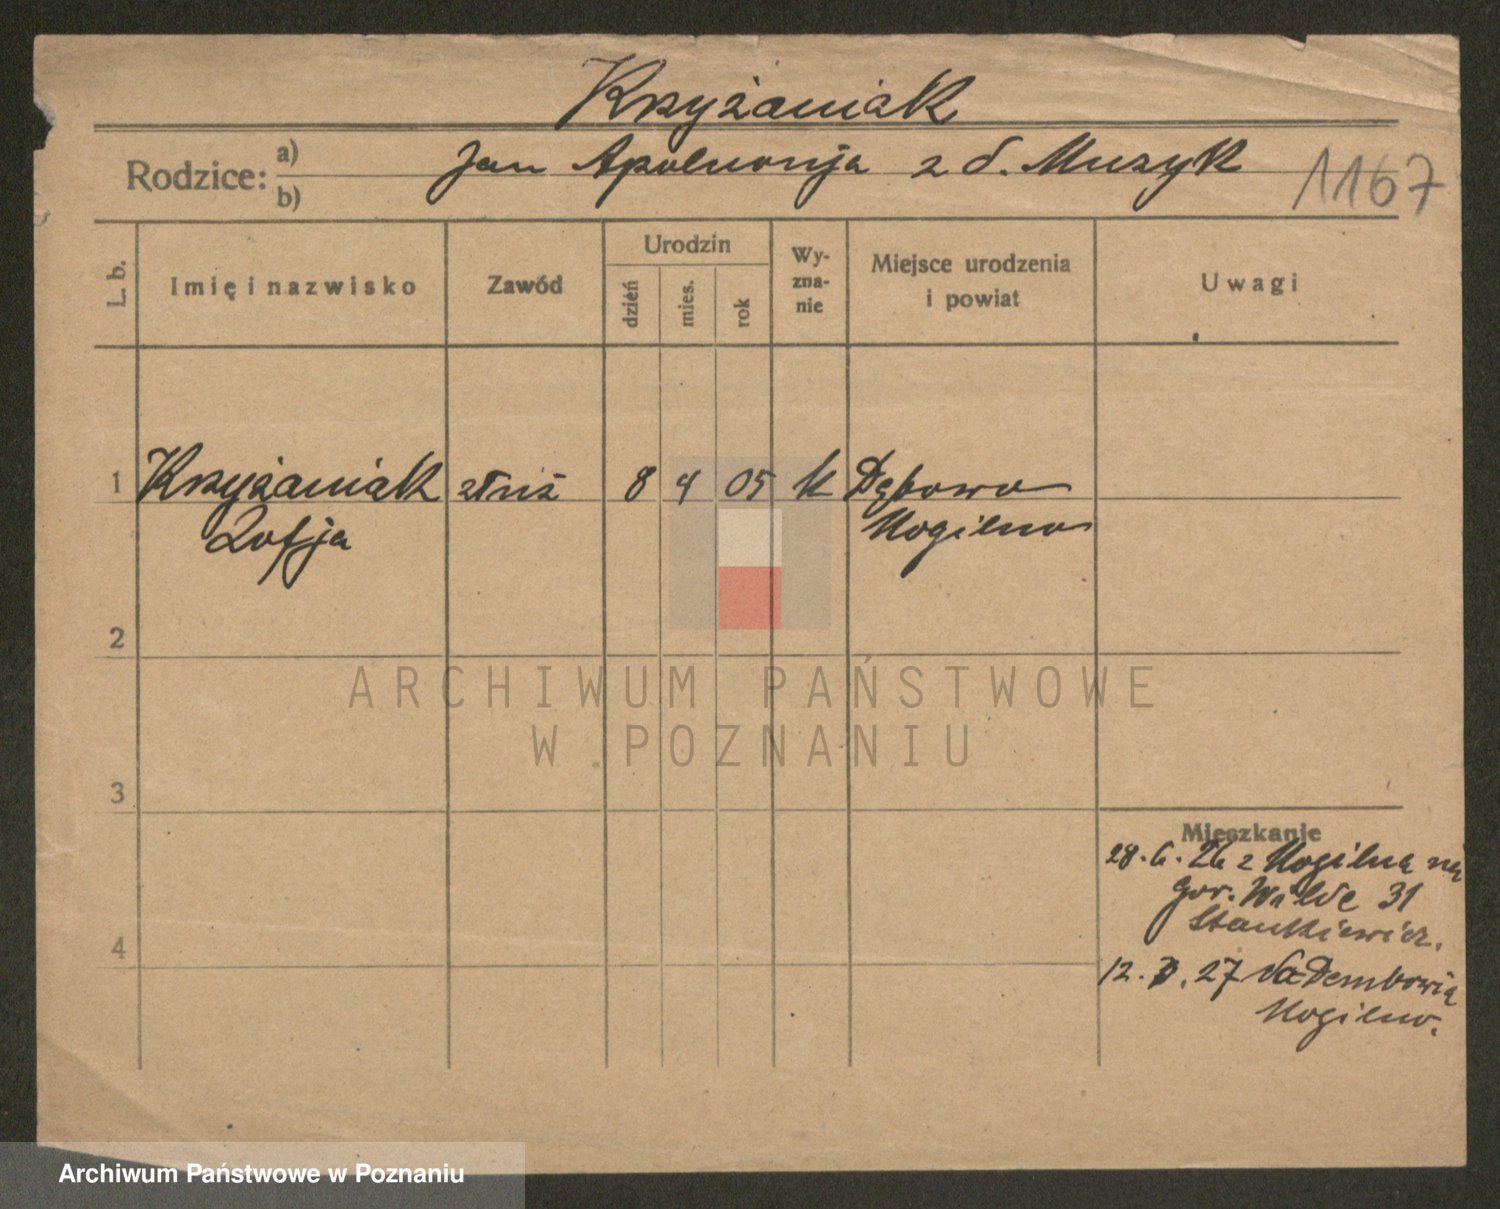 Krzyżaniak
Rodzice: a) b)
Jan Apolnonja z d. Muzyk
1167
L. b.
Imię i nazwisko
Zawód
Urodzin
dzień
mies.
rok
Wy-
zna-
nie
Miejsce urodzenia
i powiat
Uwagi
1 Krzyżaniak służ 8 4 05 k Dębowo
Zofja Mogilno
2
ARCHIWUM PAŃSTWOWE
W POZNANIU
3
Mieszkanie
28. 6. 26 z Mogilna na
gór. Wilde 31
Stankiewicz.
4
12. 27 Mogilno.
Archiwum Państwowe w Poznaniu